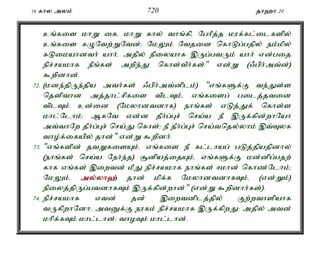 16 கால அலம் 720 தாஹா 20
உங்களை மாறு கை மாறு கால் வாங்கி, பேரீத்த மரக்கட்டைகளில்
உங்களை கழுவேற்றுவேன்; மேலும் வேதனை கொடுப்பதில் நம்மில்
கடுமையானவர் யார், அதில் நிலையாக இருப்பவரும் யார் என்பதை
நிச்சயமாக நீங்கள் அறிந்து கொள்வீர்கள்" என்று (ஃபிர்அவ்ன்)
கூறினான்.
72. (மனந்திருந்திய அவர்கள் ஃபிர்அவ்னிடம்) "எங்களுக்கு வந்துள்ள
தெளிவான அத்தாட்சிகளை விடவும், எங்களைப் படைத்தவனை
விடவும் உன்னை (மேலானவனாக) நாங்கள் எடுத்துக் கொள்ள
மாட்டோம்; ஆகவே என்ன தீர்ப்புச் செய்ய நீ இருக்கின்றாயோ
அவ்வாறே தீர்ப்புச் செய்து கொள்; நீ தீர்ப்புச் செய்வதெல்லாம் இவ்வுலக
வாழ்க்கையில் தான்" என்று கூறினர்.
73. "எங்களின் தவறுகளையும், எங்களை நீ கட்டாயப் படுத்தியதினால்
(நாங்கள் செய்ய நேர்ந்த) சூனியத்தையும், எங்களுக்கு மன்னிப்பதற்
காக எங்கள் இறைவன் மீது நிச்சயமாக நாங்கள் ஈமான் கொண்டோம்;
மேலும், அல்லாஹ் தான் மிக்க மேலானவனாகவும், (என்றும்)
நிலைத்திருப்பவனாகவும் இருக்கின்றான்" (என்று கூறினார்கள்).
74. நிச்சயமாக எவன் தன் இறைவனிடத்தில் குற்றவாளியாக
வருகிறானோ, அவனுக்கு நரகம் நிச்சயமாக இருக்கிறது; அதில் அவன்
மரிக்கவும் மாட்டான்; வாழவும் மாட்டான்.